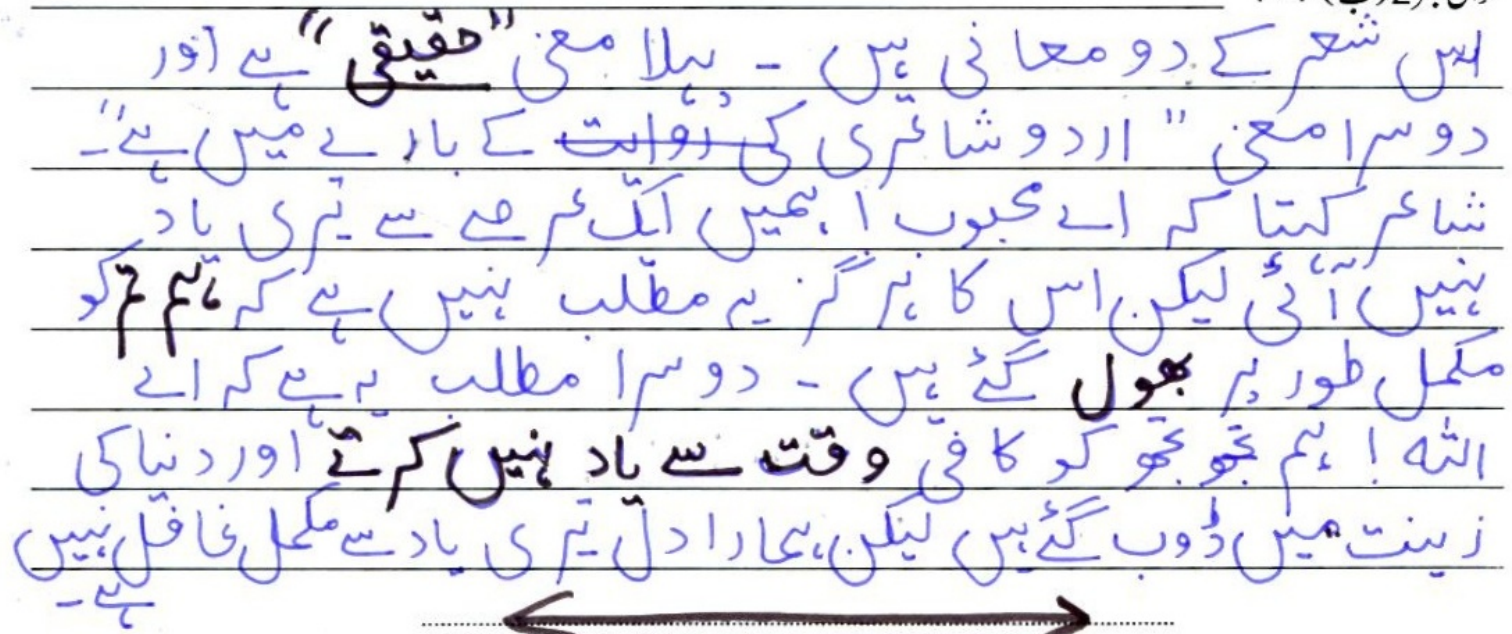 اس شعر کے دو معانی ہیں ۔ پہلا معنی "حقیقی" ہے اور
دوسرا معنی "اردو شاعری کی روایت کے بارے میں ہے"۔
شاعر کہتا کہ اے محبوب ! ہمیں ایک عرصے سے تیری یاد
نہیں آئی لیکن اس کا ہرگز یہ مطلب نہیں ہے کہ ہم تم کو
مکمل طور پر بھول گئے ہیں ۔ دوسرا مطلب یہ ہے کہ اے
اللہ ! ہم تجھ تجھ کو کافی وقت سے یاد نہیں کرتے اور دنیا کی
زینت میں ڈوب گئے ہیں لیکن ہمارا دل تیری یاد سے مکمل غافل نہیں
ہے ۔